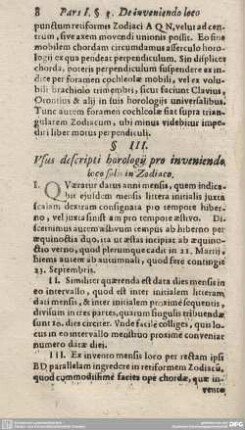 8 Pars I. § 3. De inveniendo loco
punctum retiformis Zodiaci A Q N, velut ad cen-
trum, sive axem movendi unionis possit. Eo sine
mobilem chordam circumdamus asserculo horo-
logij ex qua pendeat perpendiculum. Sin displices
chorda, poteris perpendiculum suspendere ex in-
dice per foramen cochleolæ mobili, vel ex volu-
bili brachiolo trimembri, sicut faciunt Clavius,
Orontius & alij in suis horologijs universalibus.
Tunc autem foramen cochleolæ fiat supra trian-
gularem Zodiacum, ubi minus videbitur impe-
diri liber motus perpendiculi.
§ III.
Usus descripti horologij pro inveniendo
loco solis in Zodiaco.
I. QUæratur datus anni mensis, quem indica-
bit ejusdem mensis littera initialis juxta
scalam dextram consignata pro tempore hiber-
no, vel juxta sinistram pro tempore æstivo. Di-
scerminus autem æstivum tempus ab hiberno per
æquinoctia duo, ita ut æstas incipiat ab æquino-
ctio verno, quod plerumque cadit in 21. Martij
hiems autem ab autumnali, quod fere contingit
23. Septembris.
II. Similiter quærenda est data dies mensis in
eo intervallo, quod est inter initialem litteram
dati mensis, & inter initialem proxime sequentis,
divisum in tres partes, quarum singulis tribuendæ
sunt 10. dies circiter. Unde facile colliges, quis lo-
cus in eo intervallo menstruo proxime conveniat
numero datæ diei.
III. Ex invento mensis loco per rectam ipsi
BD parallelam ingredere in retiformem Zodiacū,
quod commodissime facies ope chordæ, quæ in-
vento